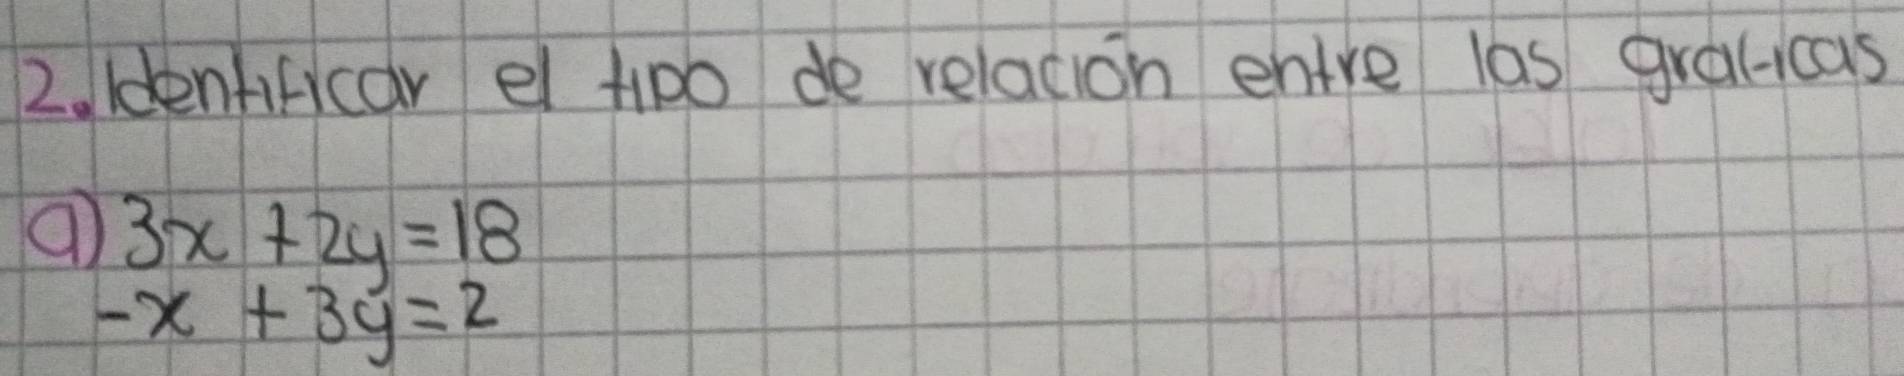 2. Identificar el tipo de relación entre las graficas
a) 3x + 2y = 18
-x + 3y = 2